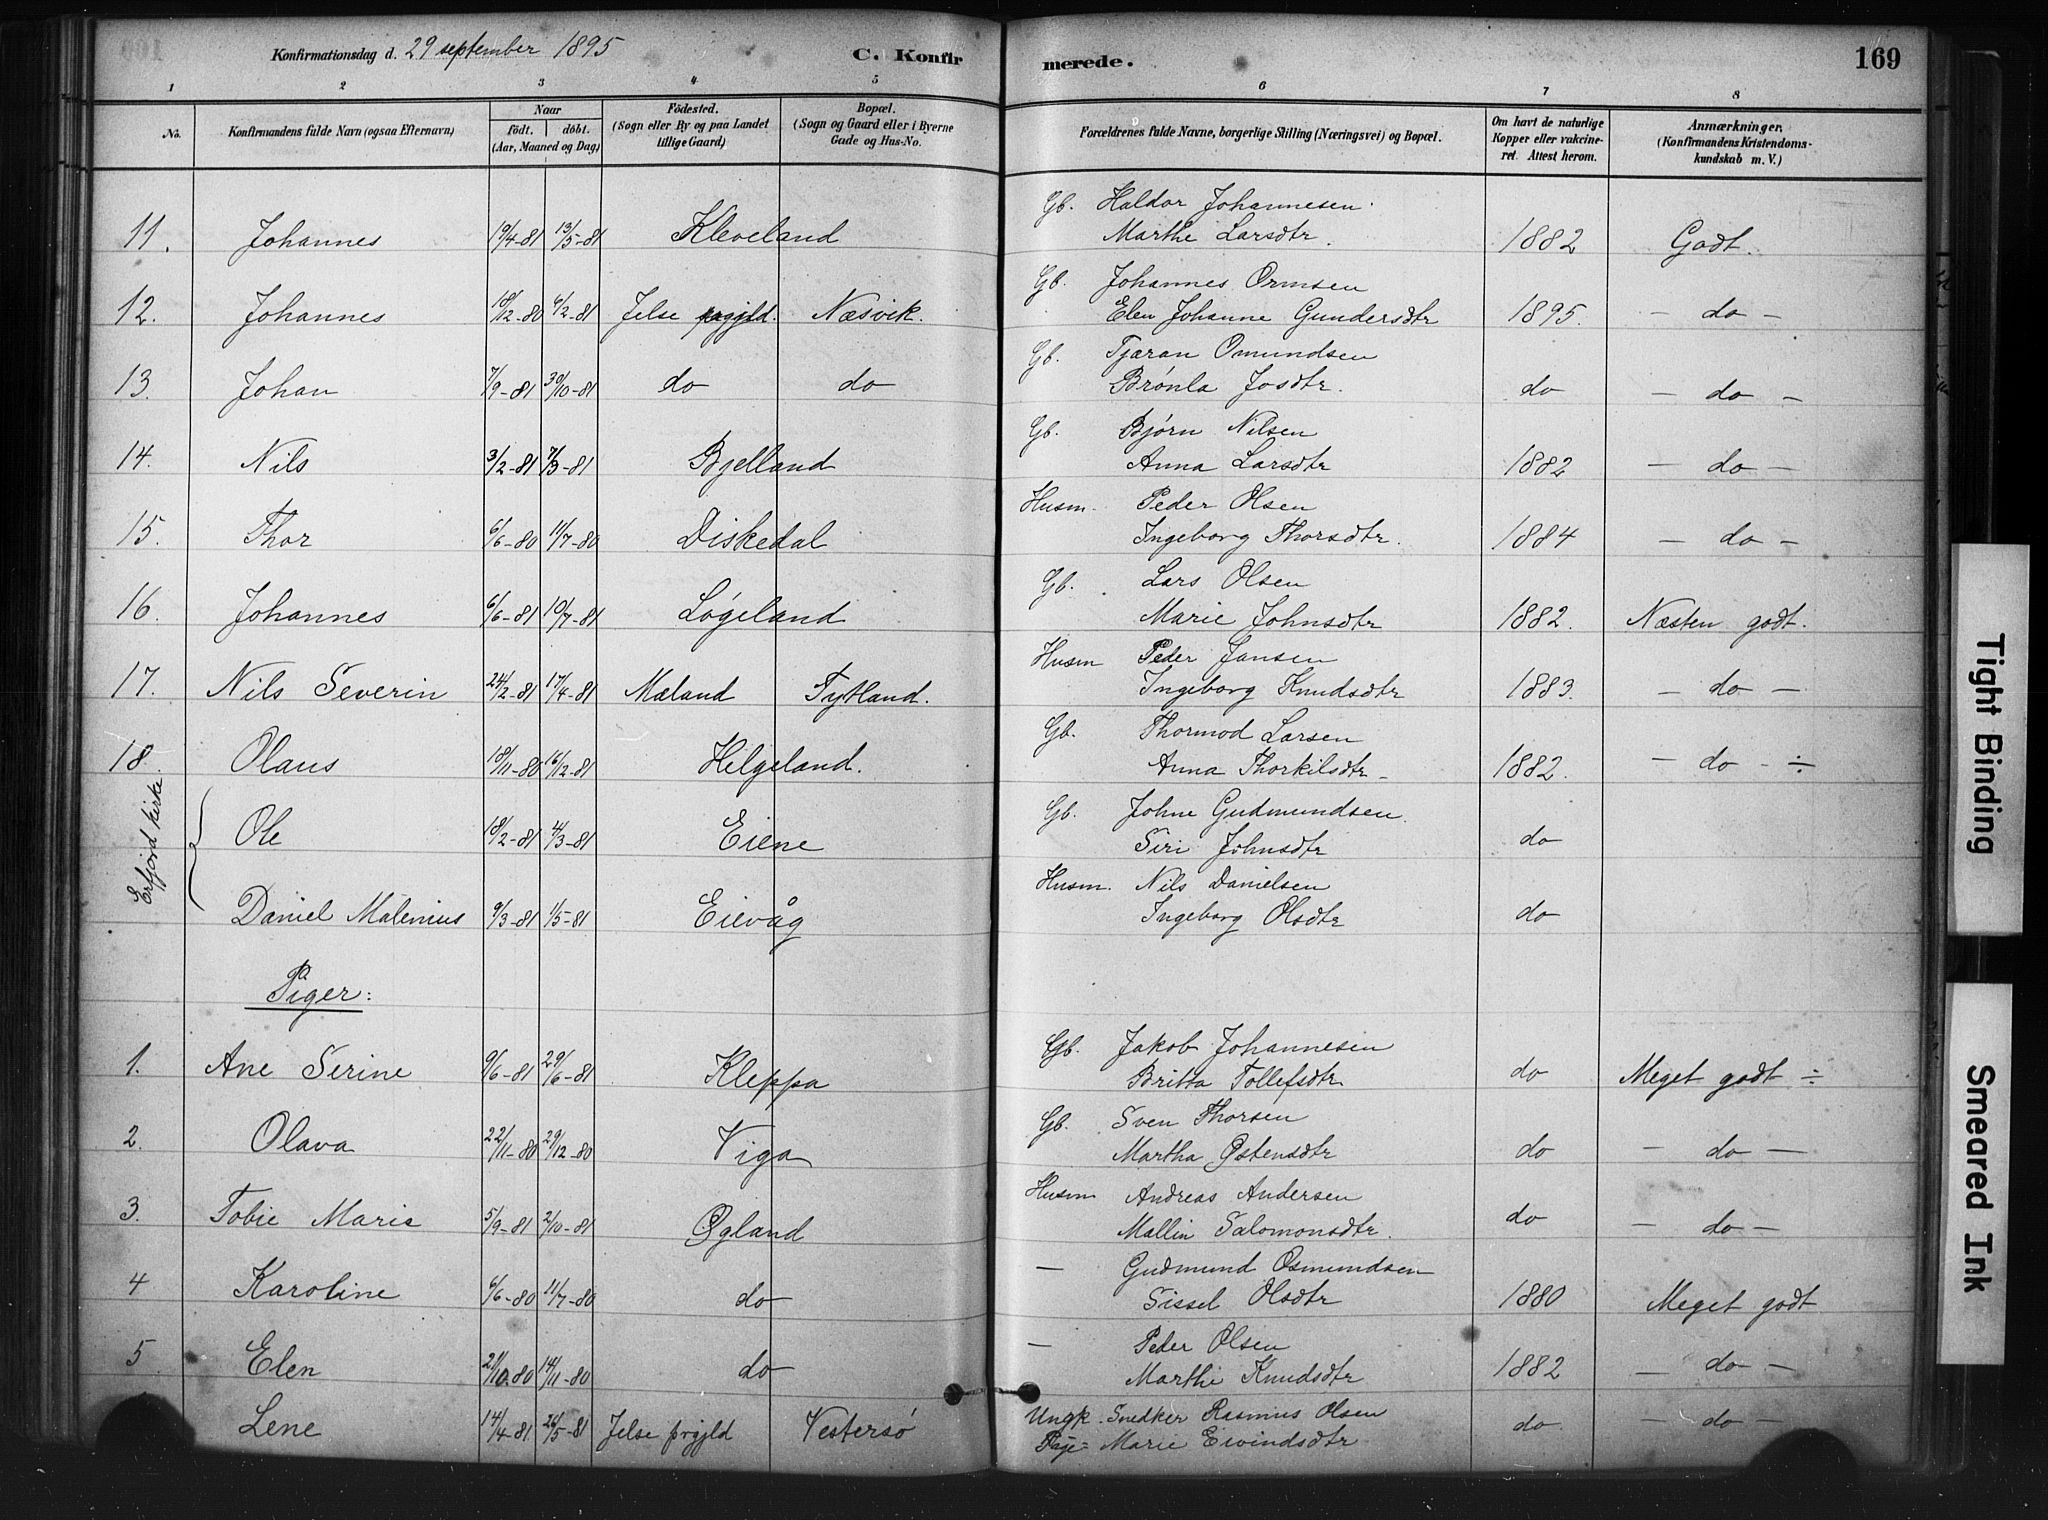 Konfirmationsdag d. 29 september 1895 C. Konfirmerede. 169
1 2 3 4 5 6 7 8
No. Konfirmandens fulde Navn (ogsaa Efternavn) Naar født. døbt. (Aar, Maaned og Dag) Fødested. (Sogn eller By og paa Landet tillige Gaard) Bopæl. (Sogn og Gaard eller i Byerne Gade og Hus-No. Forældrenes fulde Navne, borgerlige Stilling (Næringsvei) og Bopæl. Om havt de naturlige Kopper eller vakcineret. Attest herom. Anmærkninger, (Konfirmandens Kristendomskundskab m. V.)
Gb. Haldor Johannesen.
11. Johannes 19/4-81 13/5-81 Kleveland Marthe Larsdtr. 1882 Godt.
Gb. Johannes Ormsen
12. Johannes 18/12-80 6/2-81 Jelse prgjld. Næsvik. Elen Johanne Gundersdtr 1895. - do -
Gb. Tjæran Omundsen
13. Johan 7/9-81 30/10-81 do do Brønla Josdtr. do - do -
Gb. Bjørn Nilsen
14. Nils 3/2-81 7/3-81 Bjelland Anna Larsdtr 1882 - do -
Husm. Peder Olsen
15. Thor 6/6-80 11/7-80 Diskedal Ingeborg Thorsdtr. 1884 - do -
Gb. Lars Olsen
16. Johannes 6/6-81 10/7-81 Løgeland Marie Johnsdtr 1882. Næsten godt.
Husm Peder Jansen
17. Nils Severin 24/2-81 17/4-81 Mæland Tytland. Ingeborg Knudsdtr 1883. - do -
Gb. Thormod Larsen
18. Olaus 18/11-80 16/12-81 Helgeland. Anna Thorkilsdtr - 1882. - do - ÷
Erfjord kirke
Gb. Johne Gudmundsen.
Ole 18/2-81 4/3-81 Eiene Siri Johnsdtr do
Husm. Nils Danielsen
Daniel Malenius 9/3-81 1/5-81 Eievåg Ingeborg Olsdtr do
Piger:
Gb. Jakob Johannesen
1. Ane Serine 9/6-81 29/6-81 Kleppa Britta Tollefsdtr do Meget godt ÷
Gb. Sven Thorsen
2. Olava 22/11-80 29/12-80 Viga Martha Østensdtr do - do -
Husm Andreas Andersen
3. Tobie Marie 5/9-81 2/10-81 Øgland Mallin Salomonsdtr. do - do -
- Gudmund Osmundsen
4 Karoline 6/6-80 11/7-80 do Sissel Olsdtr 1880 Meget godt
- Peder Olsen
5 Elen 21/10-80 14/11-80 do Marthe Knudsdtr 1882 - do -
Ungk. Snedker Rasmus Olsen
Lene 14/4-81 26/5-81 Jelse prgjld Vestersø Pige- Marie Eivindsdtr do - do -
Tight Binding
Smeared Ink